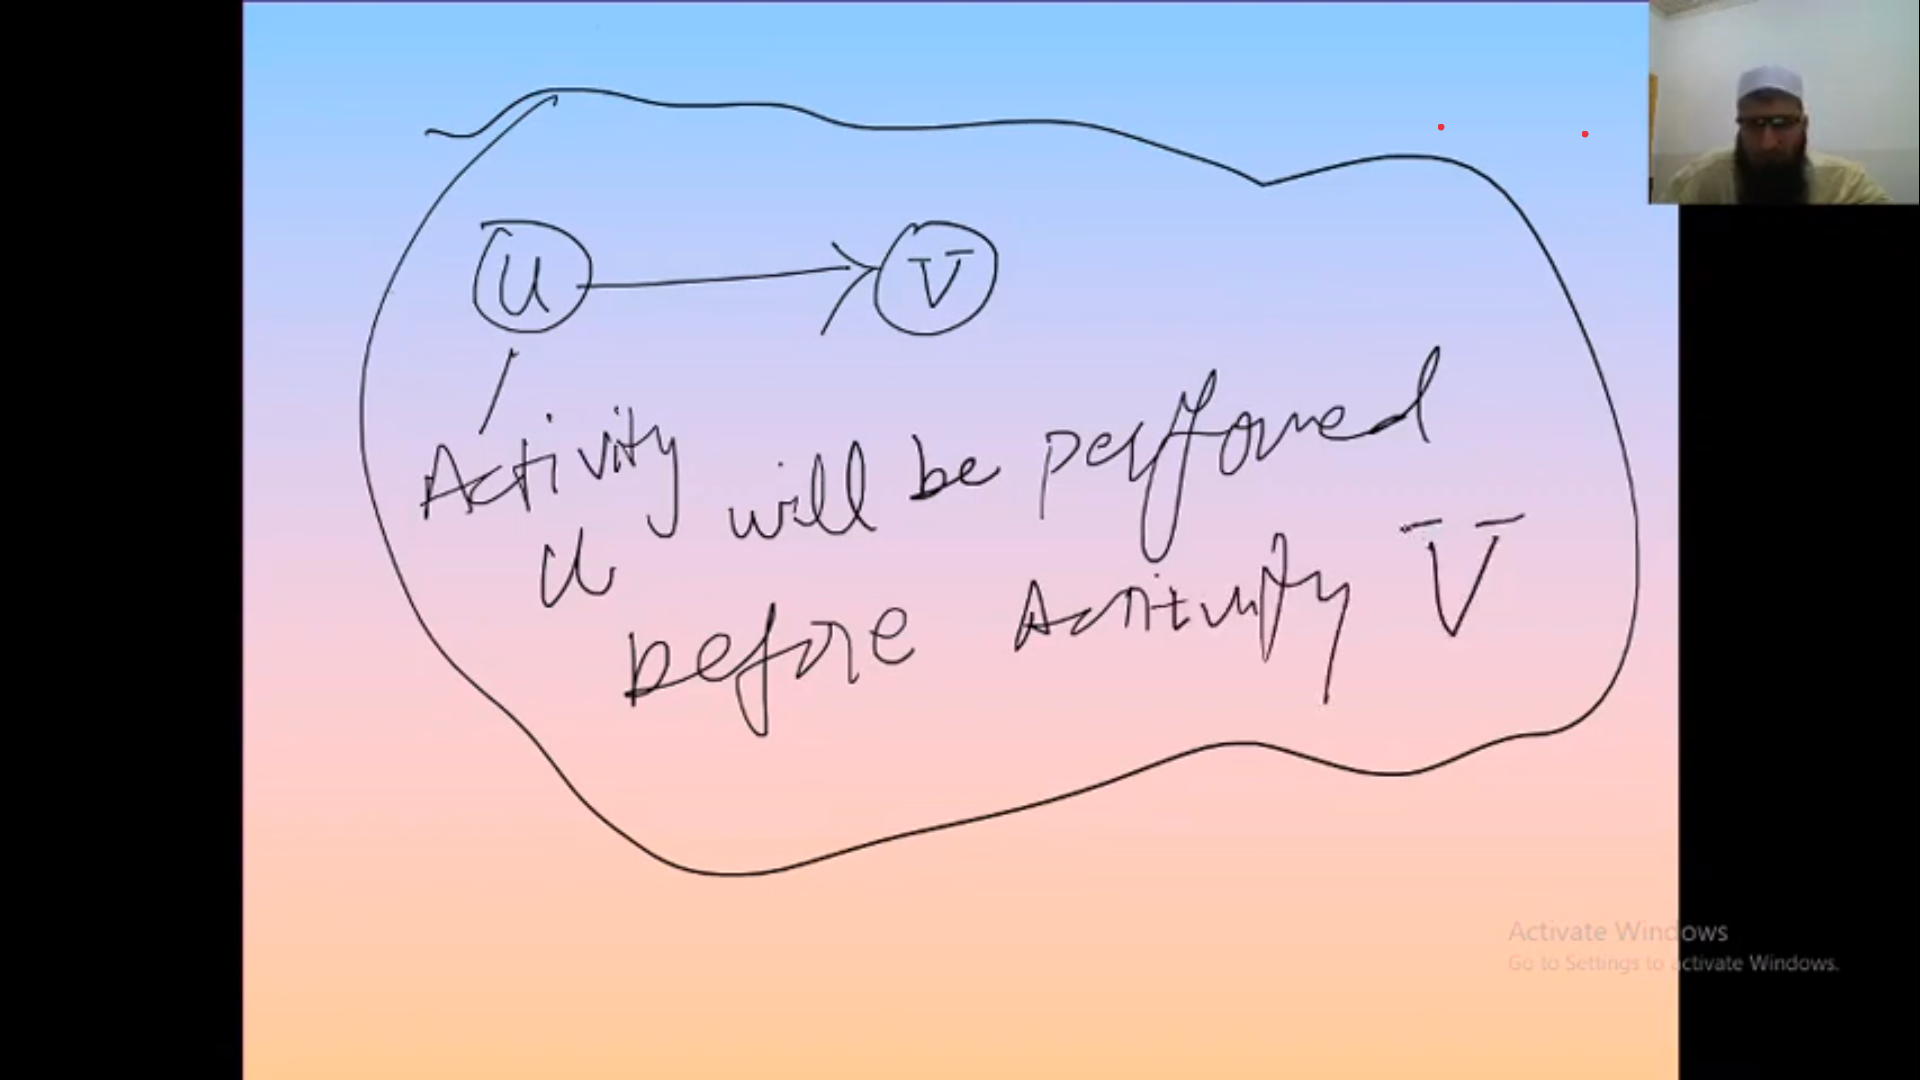 U V
Activity will be performed
U
before Activity V
Activate Windows
Go to Settings to activate Windows.